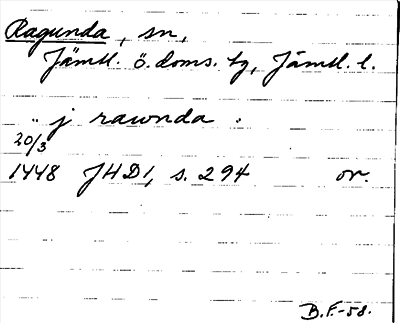 Ragunda, sn,
Jämtl. ö. doms. tg, Jämtl. l.
"j rawnda".
20/3
1448 JHD1, s. 294 or.
B.F.-58.